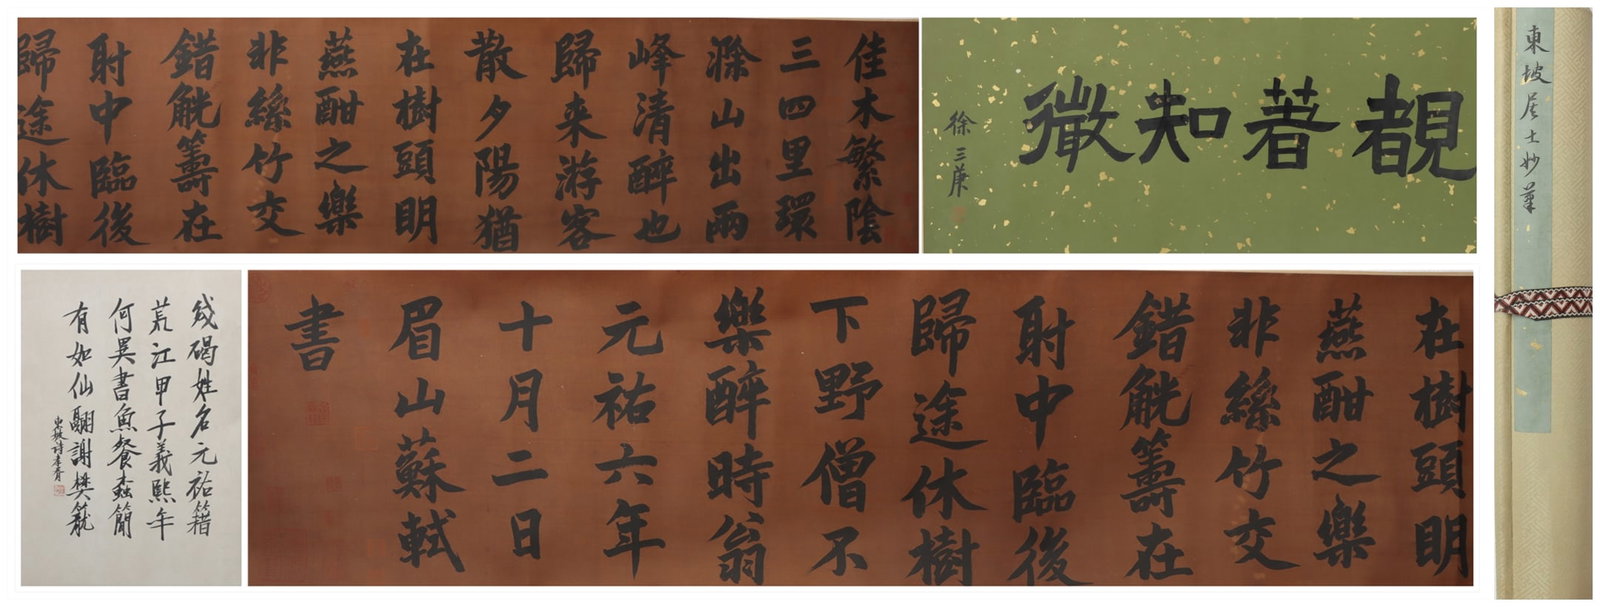 東坡居士妙筆
覩著知微
徐三庚
佳木繁陰
三四里環
滁山出兩
峰清醉也
歸来游客
散夕陽猶
在樹頭明
燕酣之樂
非絲竹交
錯觥籌在
射中臨後
歸途休樹
在樹頭明
燕酣之樂
非絲竹交
錯觥籌在
射中臨後
歸途休樹
下野僧不
樂醉時翁
元祐六年
十月二日
眉山蘇軾
書
殘碣姓名元祐籍
荒江甲子義熙年
何異書魚餐蠹簡
有如仙翮謝樊籠